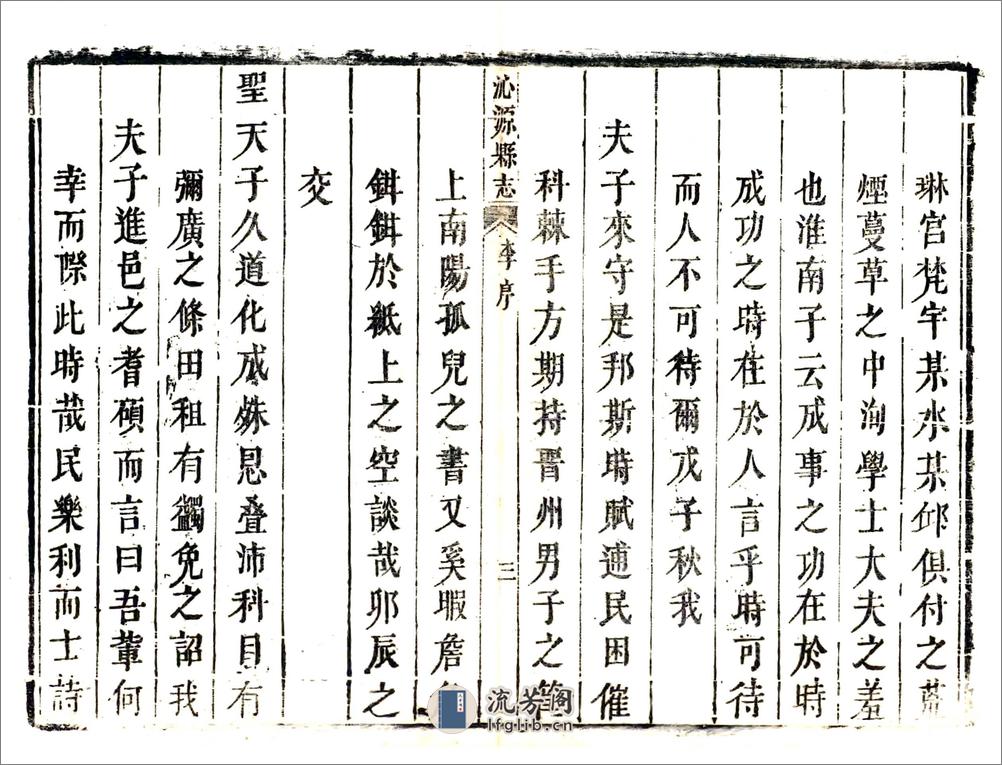 琳宫梵宇某水某邱俱付之荒
煙蔓草之中洵學士大夫之羞
也淮南子云成事之功在於時
成功之時在於人言乎時可待
而人不可待爾戊子秋我
夫子來守是邦斯時賦逋民困催
科棘手方期持晋州男子之
沁源縣志 李序 三
上南陽孤兒之書又奚暇詹
鉗鉗於紙上之空談哉卯辰之
交
聖天子久道化成殊恩叠沛科目有
彌廣之條田租有蠲免之詔我
夫子進邑之耆碩而言曰吾輩何
幸而際此時哉民樂利而士詩
流芳阁
lfglib.cn